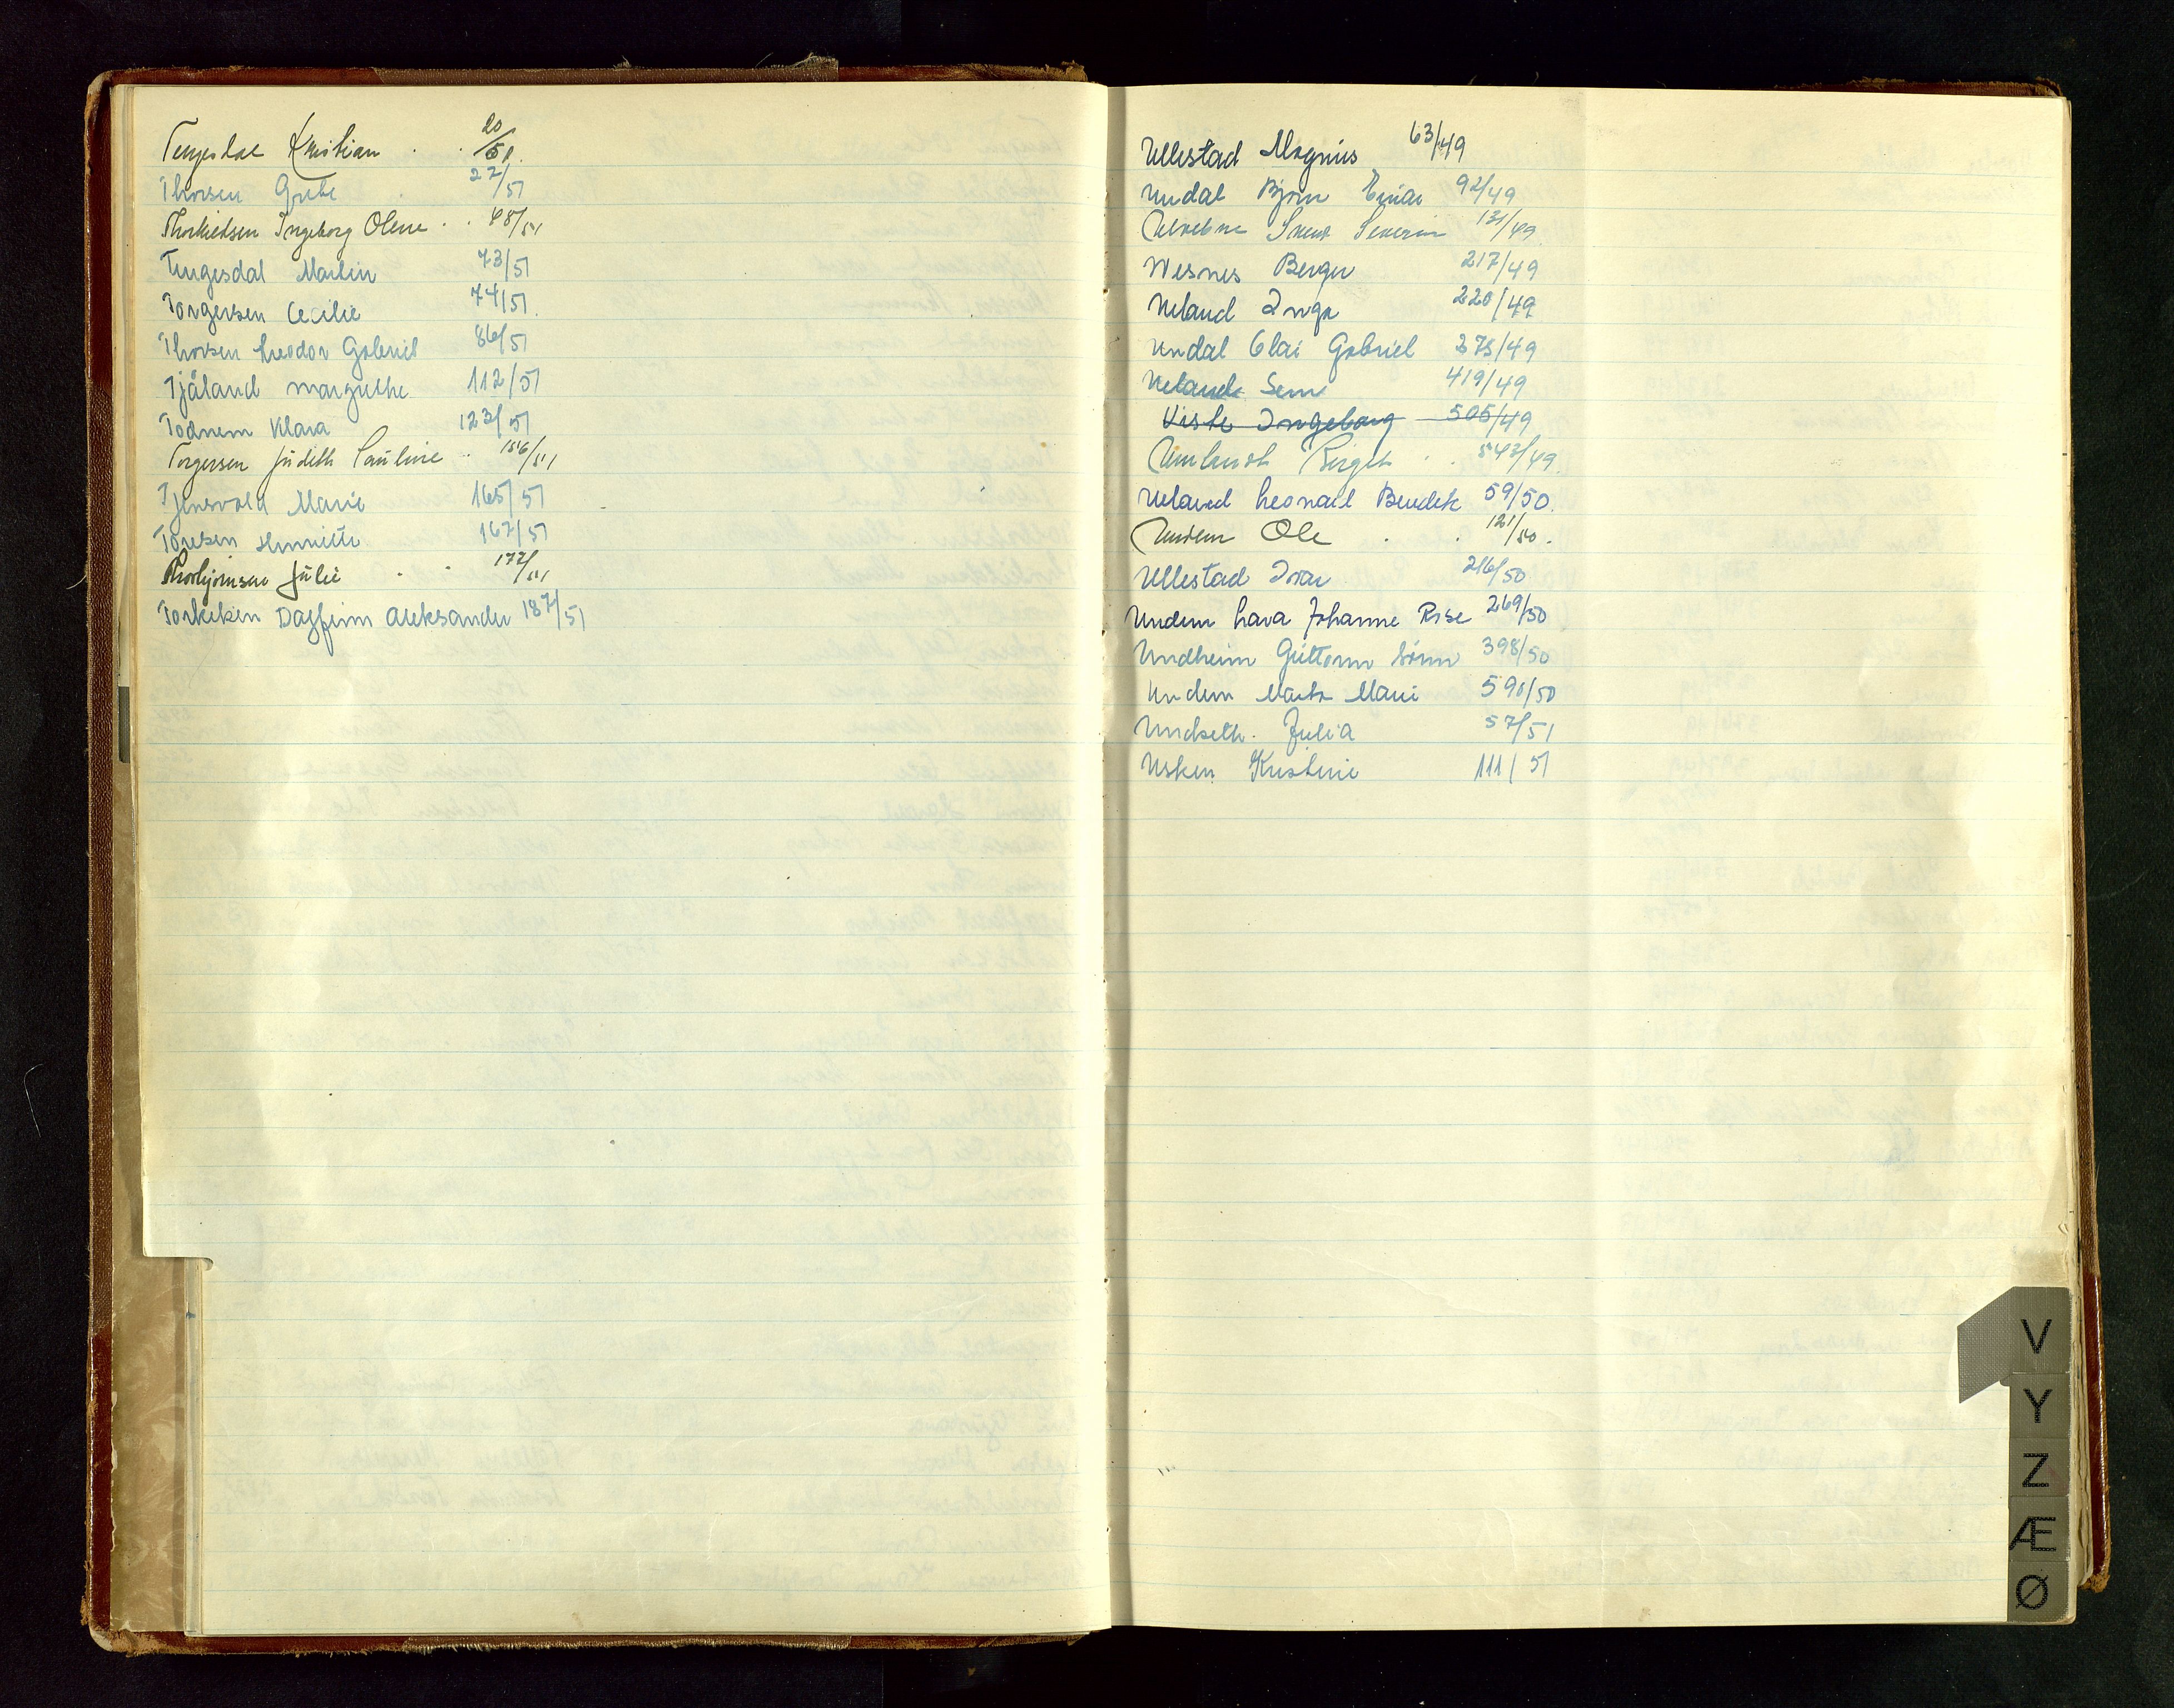 Tengesdal Kristian . . 20/51.
Thorsen Grete . 22/51
Thorkildsen Ingeborg Olene . . 48/51
Tengesdal Martin 73/51
Torgersen Cecilie 74/51.
Thorsen Theodor Gabriel 86/51
Tjåland Margrethe 112/51
Todnem Klara 123/51
Torgersen Judith Pauline . . 156/51
Tjensvold Marie 165/51
Toresen 167/51
Thorbjørnsen Julie . . 177/51
Torkelsen Dagfinn Aleksander 187/51
Ullestad Magnus 63/49
Undal Bjørn Einar 92/49
Severin 131/49.
Usnes Berger 217/49
Ueland Inga 220/49
Undal Olai Gabriel 375/49
Ueland 419/49
Viste Ingeborg 505/49
Birger . . 543/49.
Ueland Leonard Bendik 59/50.
Undem Ole . . 121/50.
Ullestad Ivar 216/50
Undem Lava Johanne Rise 269/50
Undheim Guttorm Sønn 398/50
Undem Marta Marie 590/50
Undseth. Julia 57/51
Usken Kristine 111/51
V
Y
Z
Æ
Ø